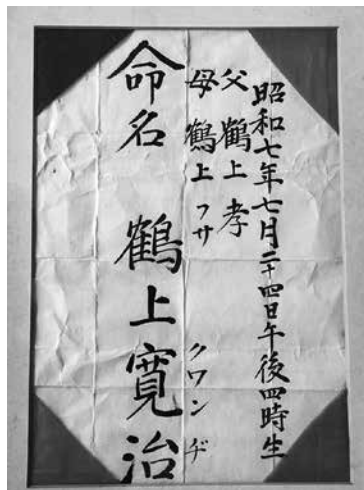 昭和七年七月二十四日午後四時生
父 鶴上孝
母 鶴上フサ
命名 鶴上寛治
クワンヂ